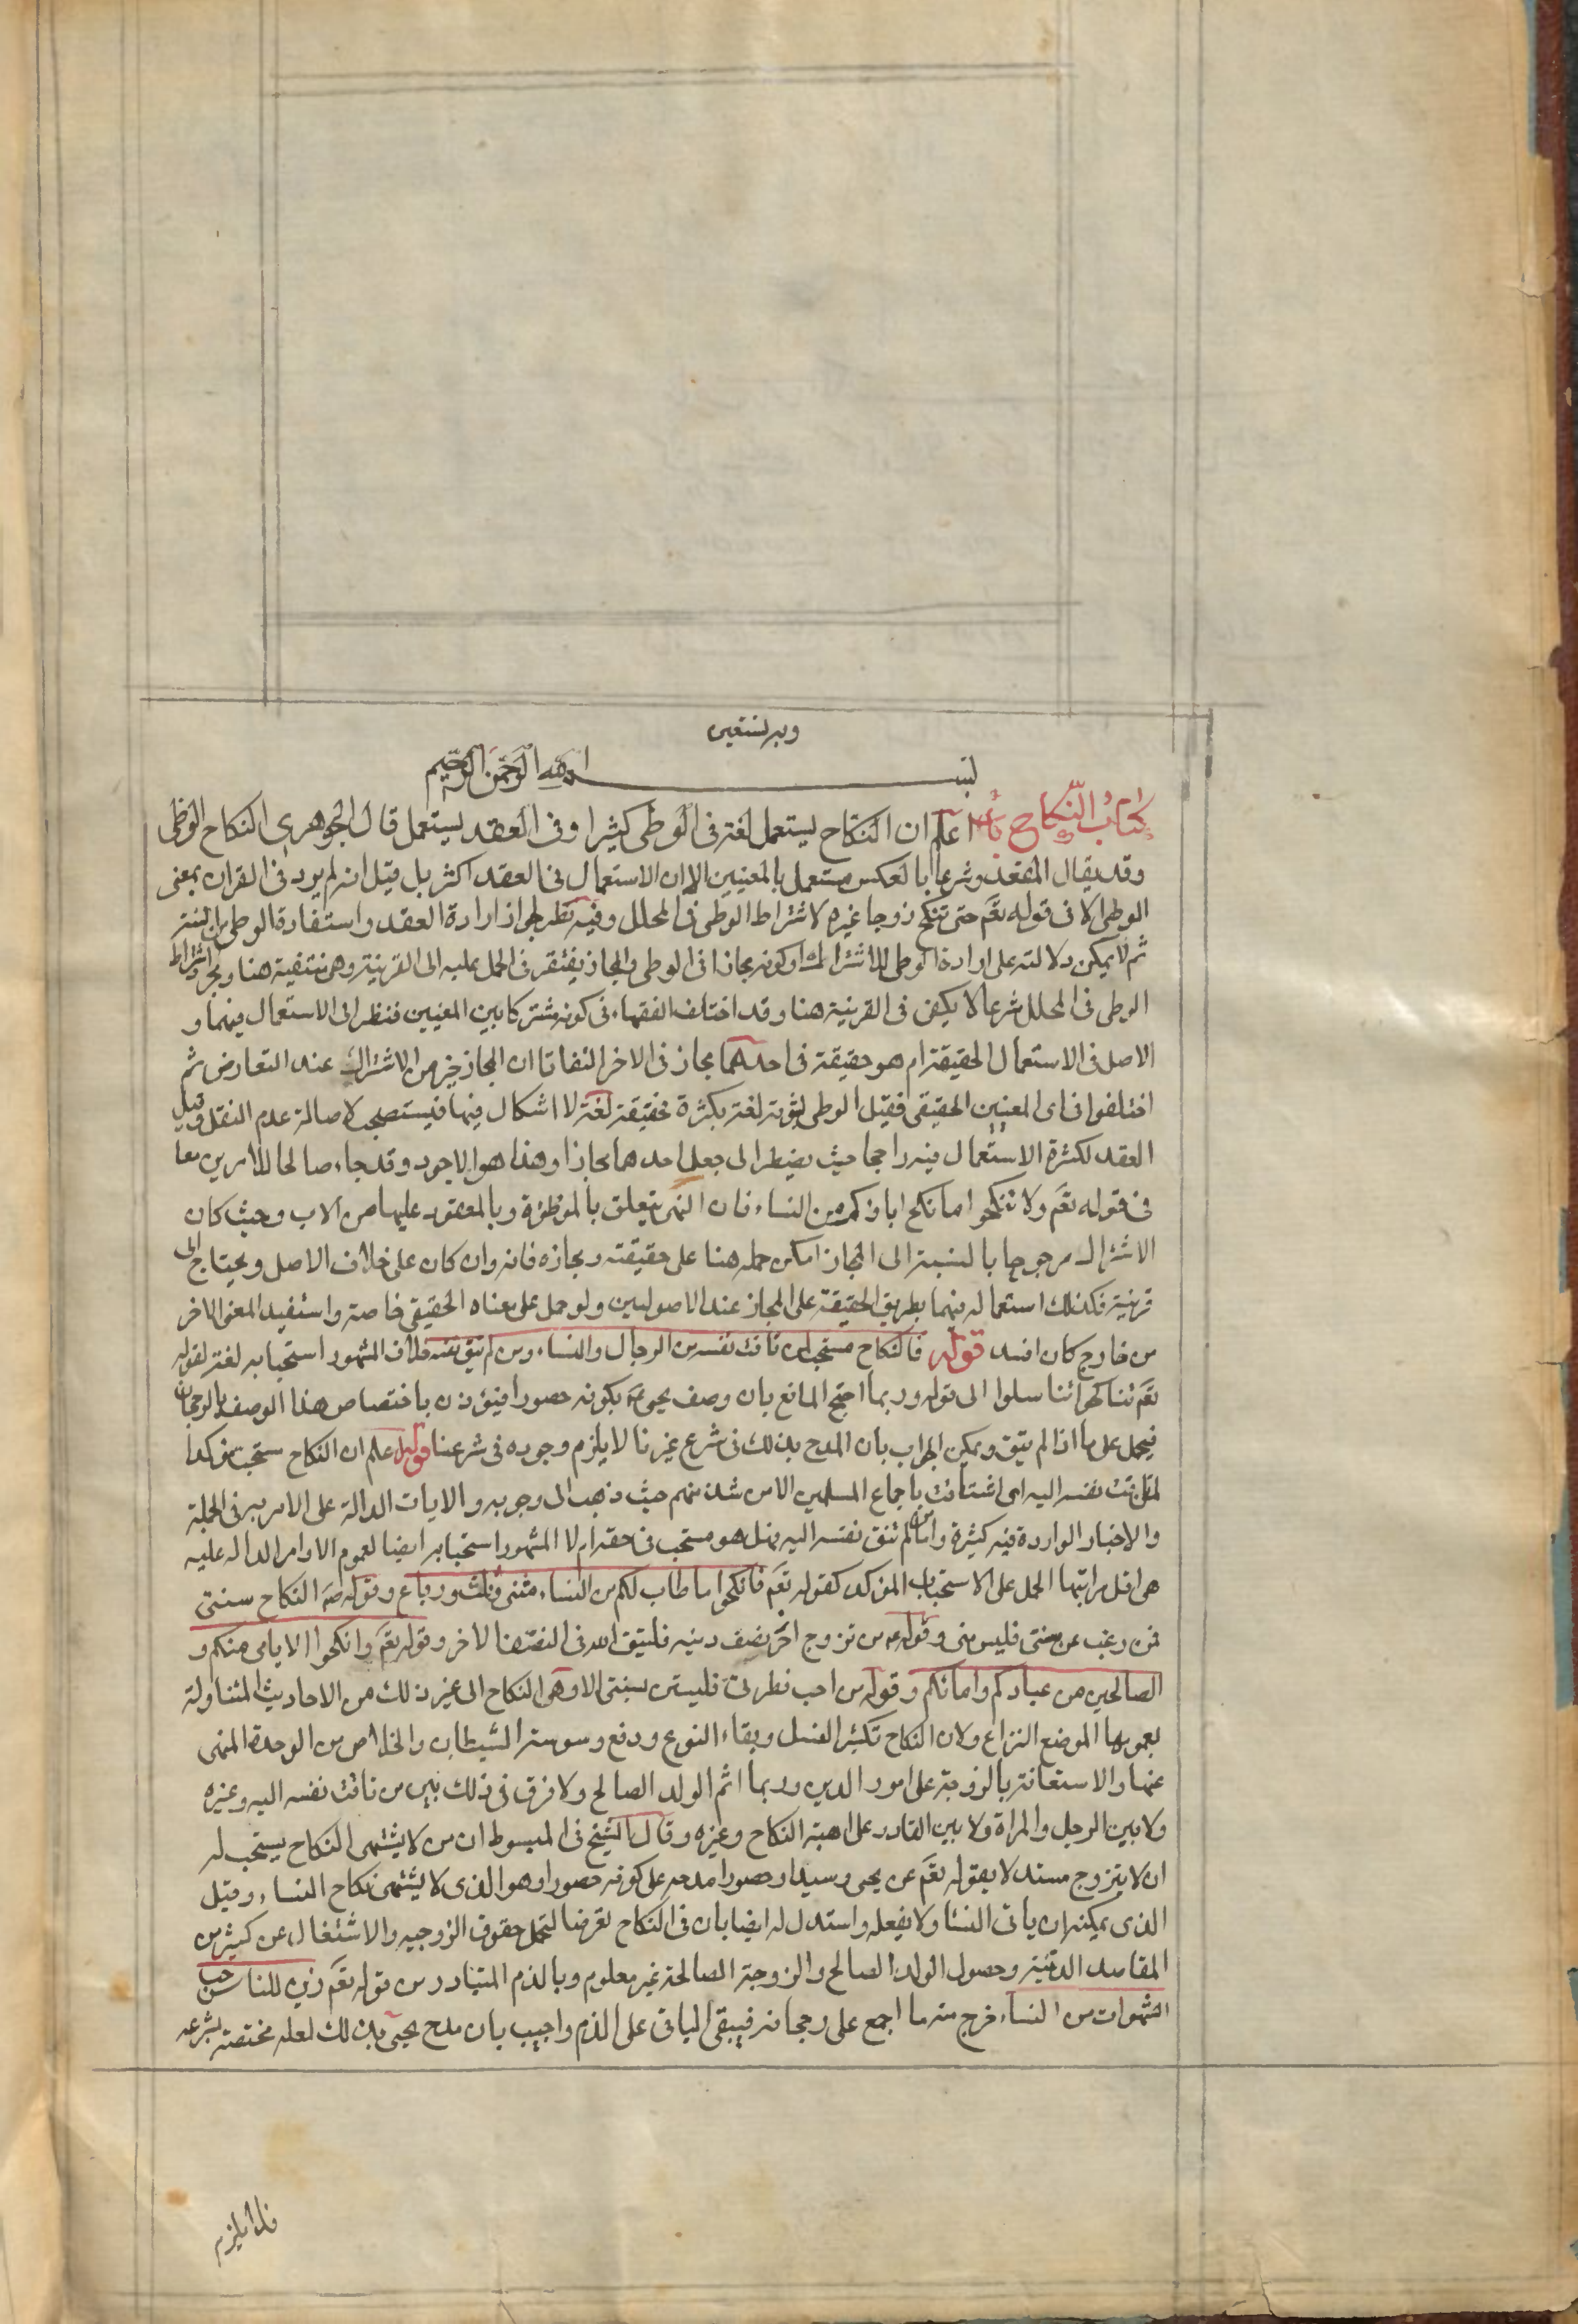 وبه نستعين
بسم الله الرحمن الرحيم
كتاب النكاح اعلم ان النكاح يستعمل لغة في الوطى كثيرا وفي العقد يستعمل قال الجوهرى النكاح الوطى
وقد يقال العقد وشرعا بالعكس مستعمل بالمعنيين الا ان الاستعمال في العقد اكثر بل قيل انه لم يرد في القران بمعنى
الوطى الا في قوله تعم حتى تنكح زوجا غيره لاشتراط الوطى في المحلل وفيه نظر لجواز ارادة العقد واستفادة الوطى من السنة
ثم لا يمكن دلالته على ارادة الوطى للاشتراك او كونه مجازا في الوطى والمجاز يفتقر في الحمل عليه الى القرينة وهى منتفية هنا ومجرد اشتراط
الوطى في المحلل شرعا لا يكفى في القرينة هنا وقد اختلف الفقهاء في كونه مشتركا بين المعنيين فنظر الى الاستعمال فيهما و
الاصل في الاستعمال الحقيقة ام هو حقيقة في احدهما مجاز في الاخر التفاتا ان المجاز خير من الاشتراك عند التعارض ثم
اختلفوا في اى المعنيين الحقيقى فقيل الوطى لثبوته لغة بكثرة حقيقة لغة لا اشكال فيها فيستصحب لاصالة عدم النقل وقيل
العقد لكثرة الاستعمال فيه راجحا حيث يضطر الى جعل احدهما مجازا وهذا هو الاجود وقد جاء صالحا للامرين معا
في قوله تعم ولا تنكحوا ما نكح اباؤكم من النساء فان النهى يتعلق بالموطؤة وبالمعقود عليها من الاب وحيث كان
الاشتراك مرجوحا بالنسبة الى المجاز امكن حمله هنا على حقيقته ومجازه فانه وان كان على خلاف الاصل ويحتاج الى
قرينة فكذلك استعماله فيهما بطريق الحقيقة على المجاز عند الاصوليين ولو حمل على معناه الحقيقى خاصة واستفيد المعنى الاخر
من خارج كان افسد قوله فالنكاح مستحب لمن تاقت نفسه من الرجال والنساء ومن لم يتق نفسه خلاف المشهور استحبابه لغة لقوله
تعم تناكحوا تناسلوا الى قوله وربما احتج المانع بان وصف يحيى ع بكونه حصورا فيؤذن باختصاص هذا الوصف بالرجحان
فيحمل على ما اذا لم يتق ويمكن الجواب بان المدح بذلك في شرع غيرنا لا يلزم وجوده في شرعنا قوله اعلم ان النكاح مستحب مؤكدا
لمن تاقت نفسه اليه اى اشتاقت باجماع المسلمين الا من شذ منهم حيث ذهب الى وجوبه والايات الدالة على الامر به في الجملة
والاخبار الواردة فيه كثيرة واما من لم تتق نفسه اليه فهل هو مستحب في حقه ام لا المشهور استحبابه ايضا لعموم الاوامر الدالة عليه
هى اقل مراتبها الحمل على الاستحباب المؤكد كقوله تعم فانكحوا ما طاب لكم من النساء مثنى وثلث ورباع وقوله ص النكاح سنتى
فمن رغب عن سنتى فليس منى وقوله ص من تزوج احرز نصف دينه فليتق الله في النصف الاخر وقوله تعم وانكحوا الايامى منكم و
الصالحين من عبادكم وامائكم وقوله من احب فطرتى فليستن بسنتى الا وهى النكاح الى غير ذلك من الاحاديث المتناولة
بعمومها الموضع النزاع ولان النكاح تكثير النسل وبقاء النوع ودفع وسوسة الشيطان والخلاص من الوحدة المنهى
عنها والاستعانة بالزوجة على امور الدين وربما اثم الولد الصالح ولا فرق في ذلك بين من تاقت نفسه اليه وغيره
ولا بين الرجل والمراة ولا بين القادر على اهبة النكاح وغيره وقال الشيخ في المبسوط ان من لا يشتهى النكاح يستحب له
ان لا يتزوج مستدلا بقوله تعم عن يحيى وسيدا وحصورا مدحه على كونه حصورا وهو الذى لا يشتهى نكاح النساء وقيل
الذى يمكنه ان ياتى النسا ولا يفعله واستدل له ايضا بان في النكاح تعرضا لتحمل حقوق الزوجيه والاشتغال عن كثير من
المقاصد الدينية وحصول الولد الصالح والزوجة الصالحة غير معلوم وبالذم المتبادر من قوله تعم زين للناس حب
الشهوات من النساء خرج منه ما اجمع على رجحانه فيبقى الباقى على الذم واجيب بان مدح يحيى بذلك لعله مختصة بشرعه
فلا يلزم